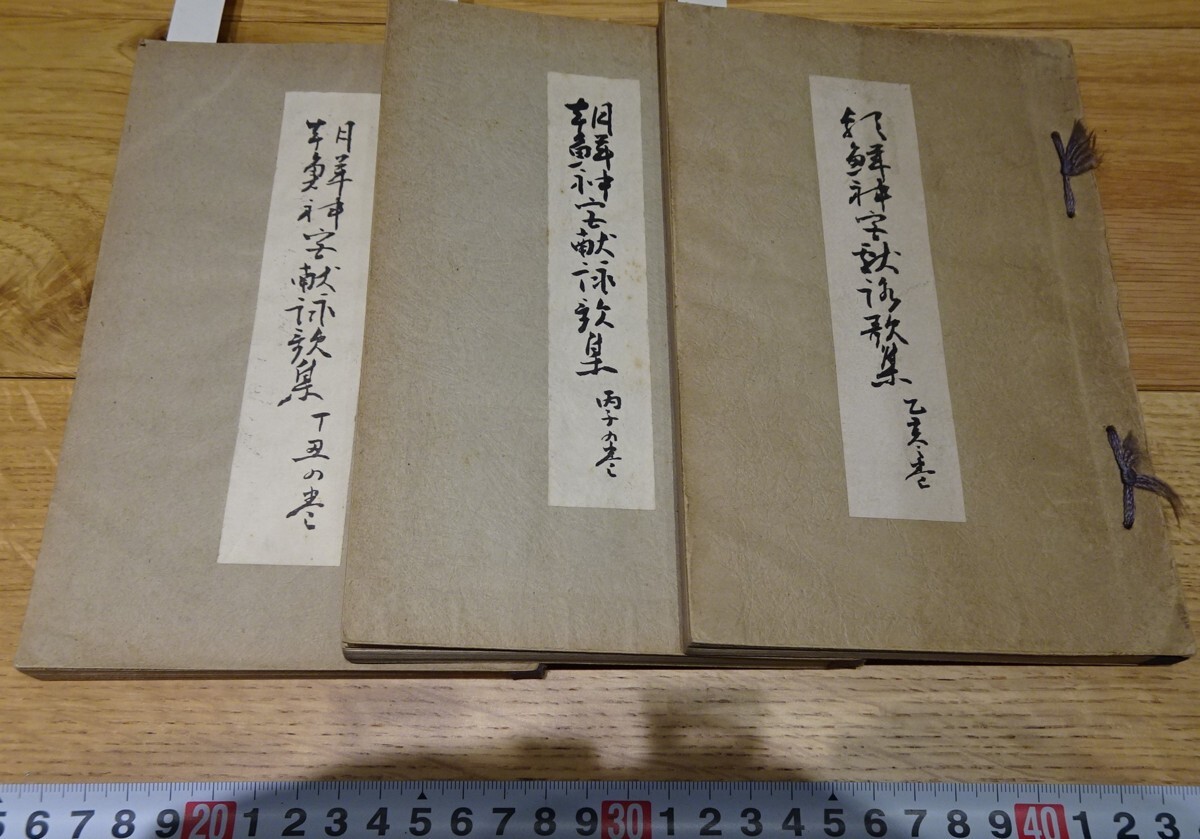 朝鮮神宮献詠歌集 乙亥之巻
朝鮮神宮献詠歌集 丙子の巻
朝鮮神宮献詠歌集 丁丑の巻
5 6 7 8 9 20 1 2 3 4 5 6 7 8 9 30 1 2 3 4 5 6 7 8 9 40 1 2 3